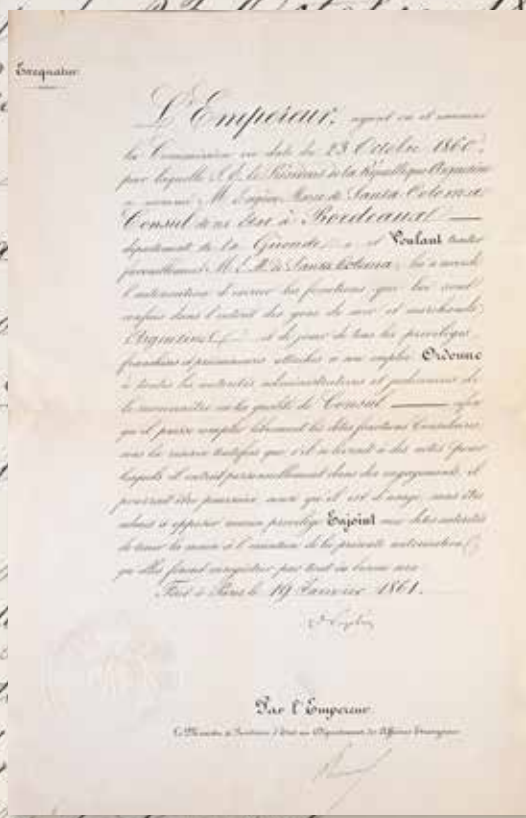 Exequatur.
L'Empereur, ayant vu et examiné
la Commission en date du 23 Octobre 1860,
par laquelle S. E. le Président de la République Argentine
a nommé M. Eugène Rosa de Santa Coloma
Consul de cet État à Bordeaux
département de la Gironde et Voulant traiter
favorablement M. E. R. de Santa Coloma, lui a accordé
l'autorisation d'exercer les fonctions qui lui sont
confiées dans l'intérêt des gens de mer et marchands
Argentins et de jouir de tous les privilèges
franchises et prééminences attachés à son emploi. Ordonne
à toutes les autorités administratives et judiciaires de
le reconnaître en la qualité de Consul afin
qu'il puisse remplir librement les dites fonctions Consulaires,
sous la réserve toutefois que s'il se livrait à des actes pour
lesquels il entrait personnellement dans des engagements, il
pourrait être poursuivi, ainsi qu'il est d'usage, sans être
admis à opposer aucun privilège. Enjoint aux dites autorités
de tenir la main à l'exécution de la présente autorisation,
qu'elles feront enregistrer par tout où besoin sera.
Fait à Paris le 19 Janvier 1861.
Par l'Empereur.
Le Ministre & Secrétaire d'État au Département des Affaires Étrangères